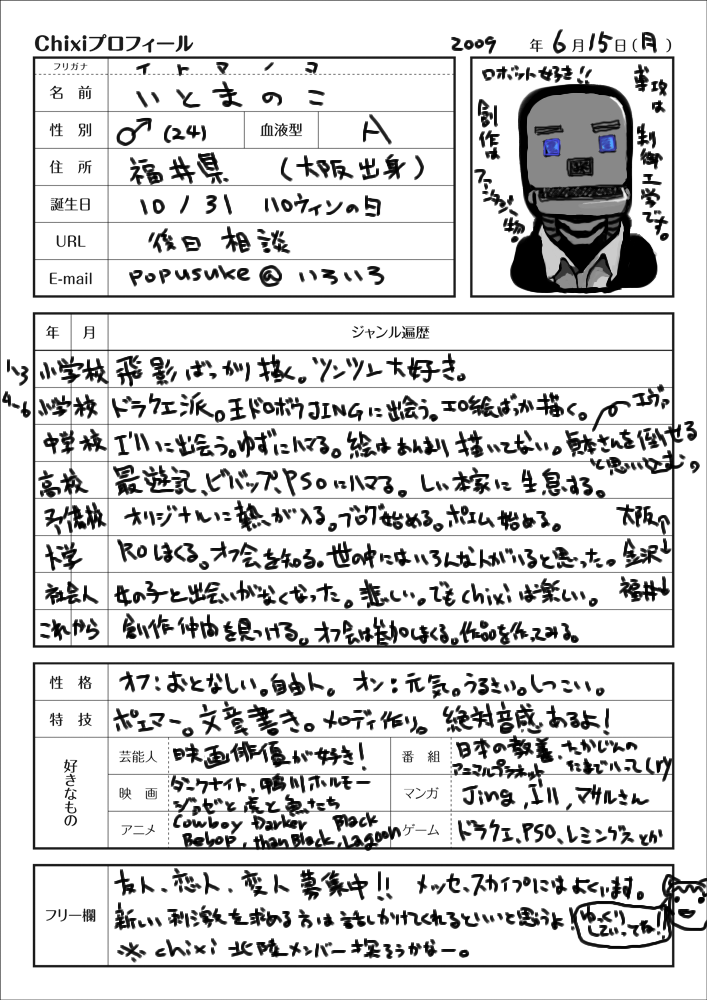 Chixiプロフィール
2009 年 6月 15日(月)
フリガナ イトマノコ
名前 いとまのこ
性別 ♂(24) 血液型 A
住所 福井県 (大阪出身)
誕生日 10/31 ハロウィンの日
URL 後日相談
E-mail popusuke@いろいろ
ロボット好き!!
専攻は制御工学です。
創作はファンタジー物。
年 月 ジャンル遍歴
1~3 小学校 飛影ばっかり描く。ツンツン大好き。
4~6 小学校 ドラクエ派。王ドロボウJINGに出会う。エロ絵ばっか描く。
エヴァ
中学校 I'llに出会う。ゆずにハマる。絵はあんまり描いてない。貞本さんを倒せる
と思い込む。
高校 最遊記、ビバップ、PSOにハマる。しい本家に生息する。
予備校 オリジナルに熱が入る。ブログ始める。ポエム始める。 大阪↑
大学 ROはくる。オフ会を知る。世の中にはいろんな人がいると思った。 金沢↓
社会人 女の子と出会いがなくなった。悲しい。でもchixiは楽しい。 福井↓
これから 創作仲間を見つける。オフ会は参加しまくる。作品を作ってみる。
性格 オフ:おとなしい。自由人。 オン:元気。うるさい。しつこい。
特技 ポエマー。文章書き。メロディ作り。絶対音感あるよ!
好きなもの
芸能人 映画俳優が好き!
番組 日本の教養、たかじんの
アニマルプラネット
映画 ダークナイト、鴨川ホルモー
ジョゼと虎と魚たち
マンガ Jing, I'll, マサルさん
アニメ Cowboy Bebop, Darker than Black, Black Lagoon
ゲーム ドラクエ、PSO、レミングスとか
フリー欄 友人、恋人、変人募集中!! メッセ、スカイプにはよくいます。
新しい刺激を求める方は話しかけてくれるといいと思うよ!
ゆっくりしていってね!!
※chixi 北陸メンバー探そうかなー。